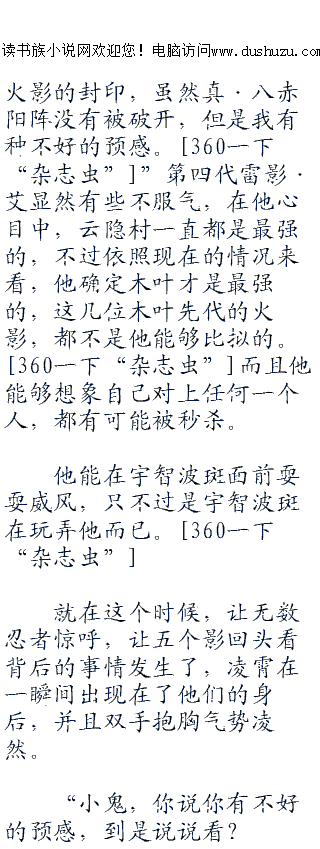 读书族小说网欢迎您！电脑访问www.dushuzu.com
火影的封印，虽然真·八赤
阳阵没有被破开，但是我有
种不好的预感。[360一下
“杂志虫”]”第四代雷影·
艾显然有些不服气，在他心
目中，云隐村一直都是最强
的，不过依照现在的情况来
看，他确定木叶才是最强
的，这几位木叶先代的火
影，都不是他能够比拟的。
[360一下“杂志虫”]而且他
能够想象自己对上任何一个
人，都有可能被秒杀。
他能在宇智波斑面前耍
耍威风，只不过是宇智波斑
在玩弄他而已。[360一下
“杂志虫”]
就在这个时候，让无数
忍者惊呼，让五个影回头看
背后的事情发生了，凌霄在
一瞬间出现在了他们的身
后，并且双手抱胸气势凌
然。
“小鬼，你说你有不好
的预感，到是说说看？